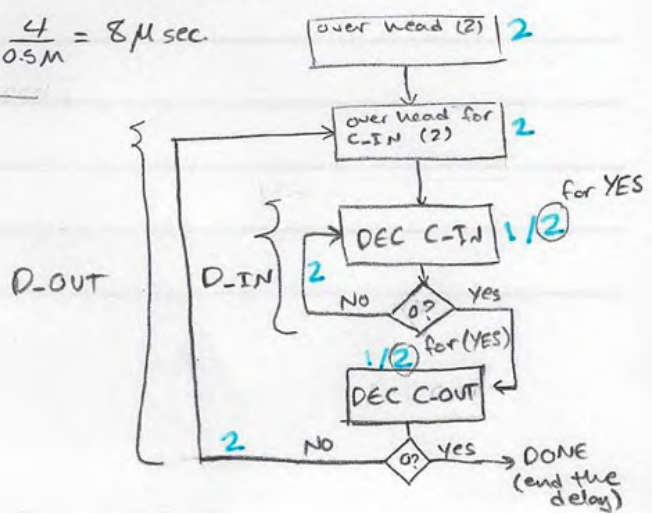 4/0.5M = 8 μ sec.
over head (2) 2
over head for
C_IN (2) 2
for YES
DEC C_IN 1/2
D_OUT
D_IN
2
NO 0? yes
for (YES)
1/2
DEC C_OUT
2 NO 0? yes DONE
(end the
delay)